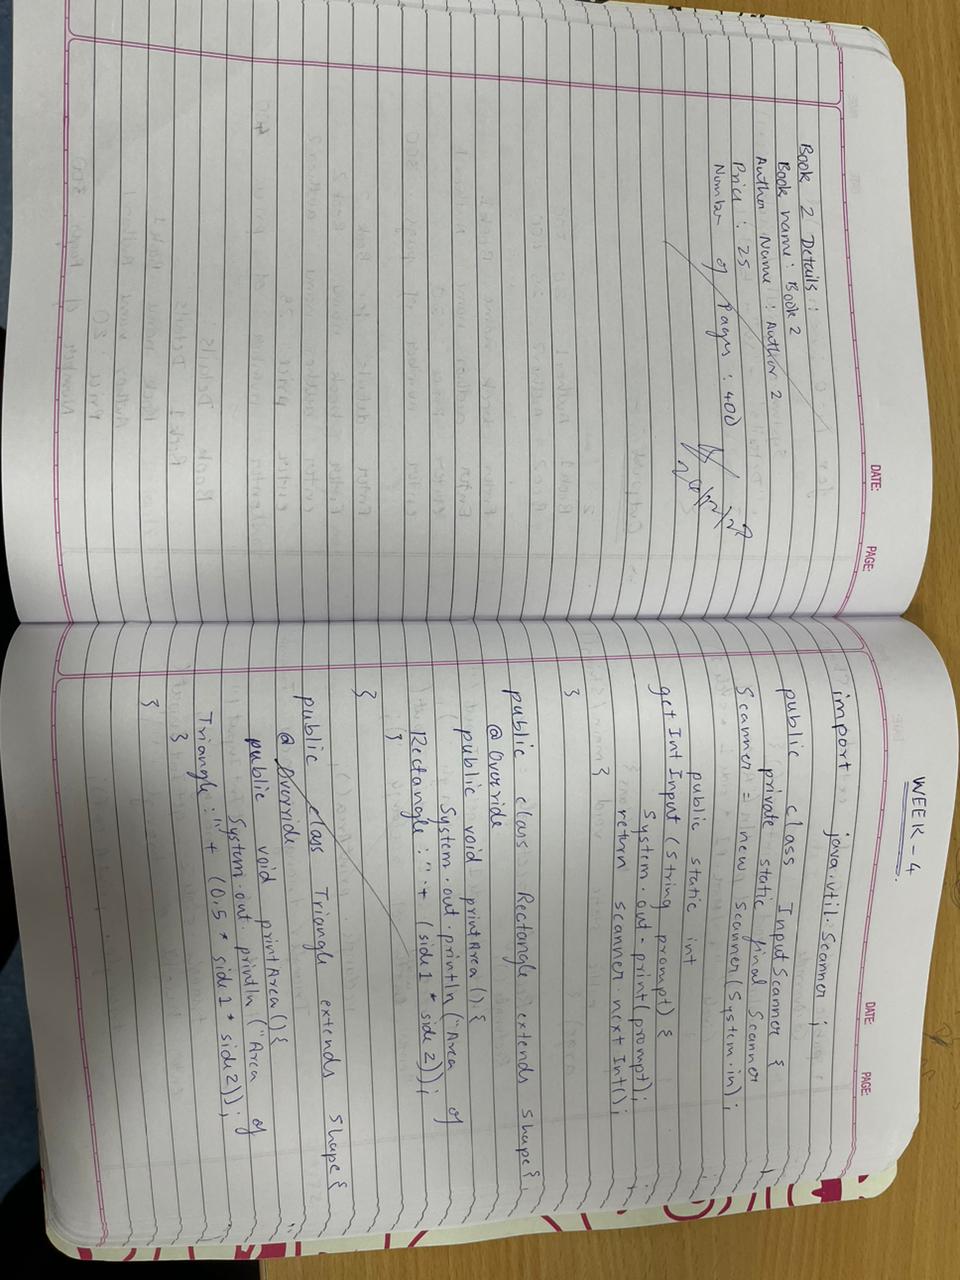 DATE: PAGE:
Book 2 Details :
Book name : Book 2
Author Name : Author 2
Price : 25
Number of Pages : 400
DATE: PAGE:
WEEK - 4
import java.util.Scanner ;
public class InputScanner {
private static final Scanner
Scanner = new Scanner (System.in) ;
public static int
get Int Input (String prompt) {
System.out.print(prompt);
return scanner.next Int();
}
}
public class Rectangle extends Shape {
@Override
public void printArea() {
System.out.println ("Area of
Rectangle : " + (side1 * side2));
}
}
public class Triangle extends Shape {
@ Override
public void printArea() {
System.out.println ("Area of
Triangle : " + (0.5 * side1 * side2));
}
}